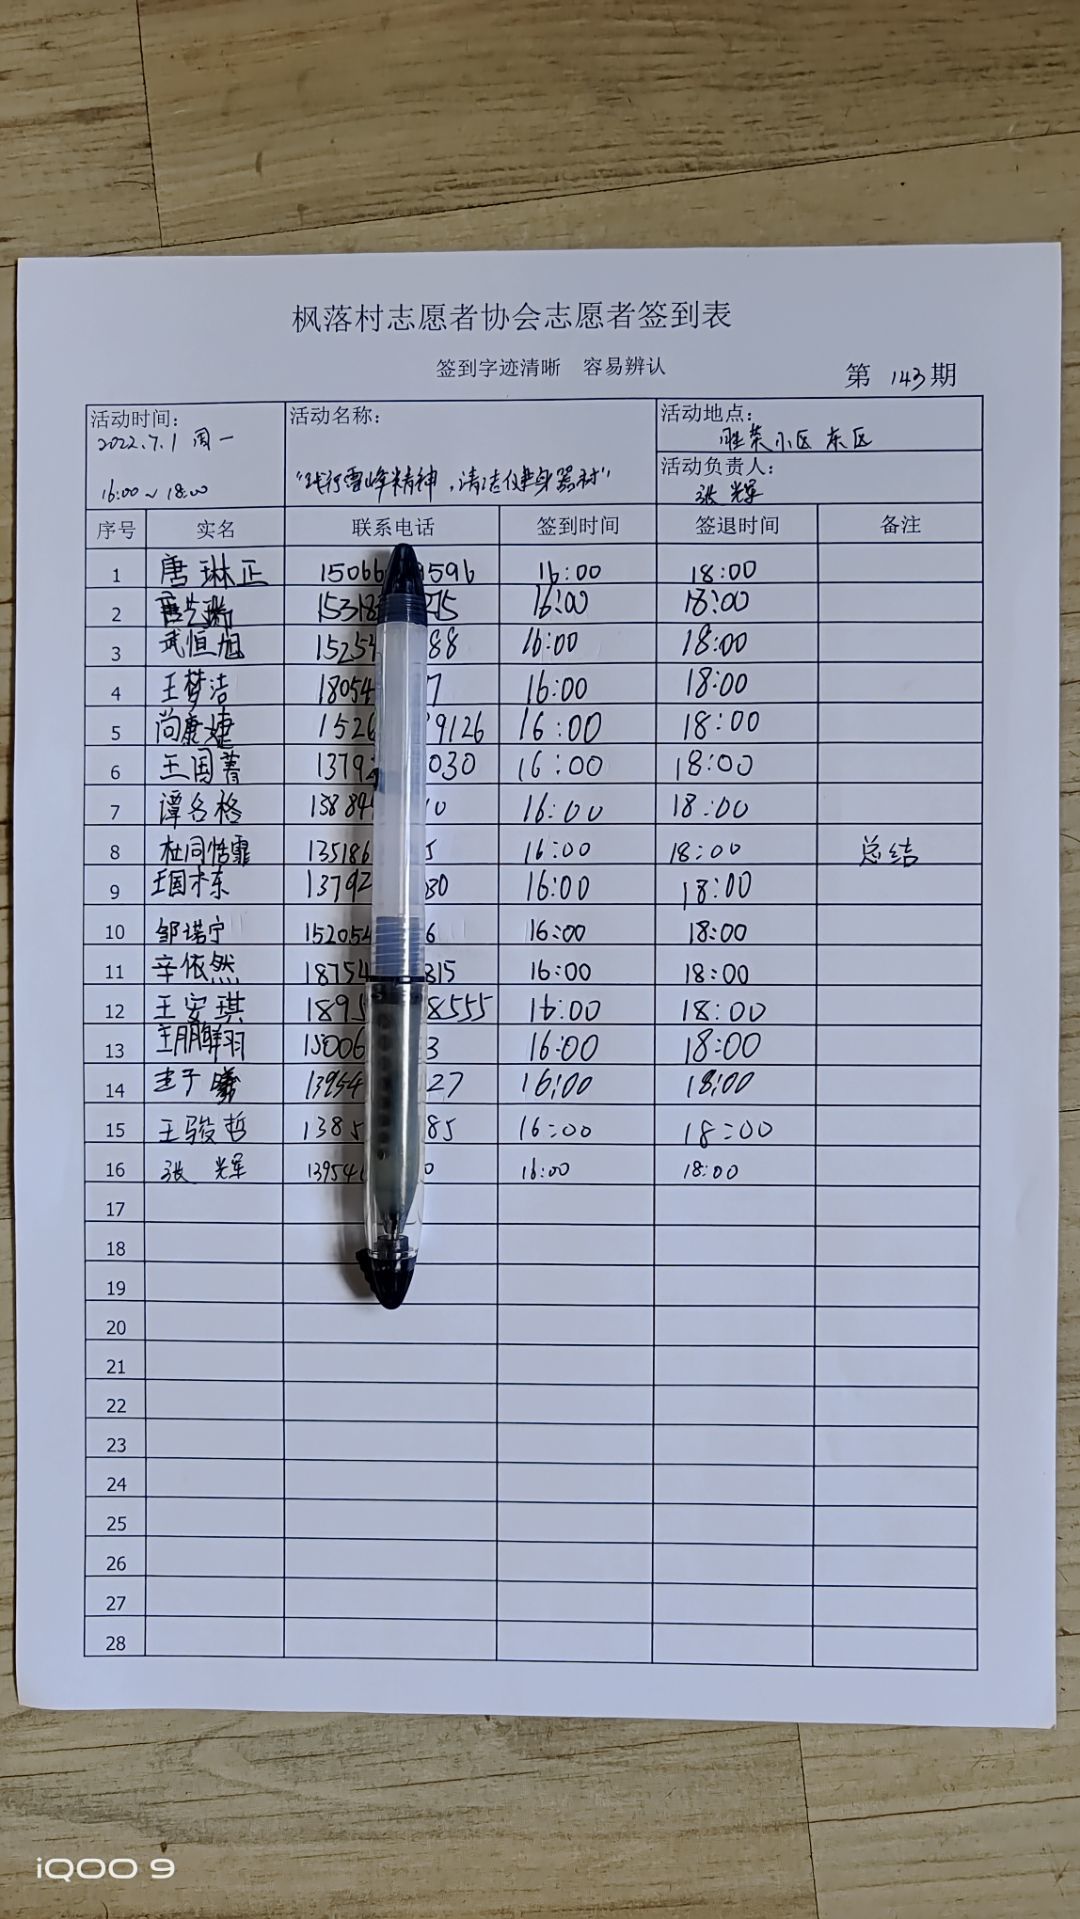 枫落村志愿者协会志愿者签到表
签到字迹清晰 容易辨认
第 143 期
活动时间: 活动名称: 活动地点:
2022.7.1 周一 胜荣小区 东区
活动负责人:
16:00~18:00 "践行雷峰精神,清洁健身器材" 张辉
序号 实名 联系电话 签到时间 签退时间 备注
1 唐琳正 15066 596 16:00 18:00
2 15318 16:00 18:00
3 武恒旭 15254 88 16:00 18:00
4 王梦洁 18054 7 16:00 18:00
5 尚康婕 1526 9126 16:00 18:00
6 王国菁 1379 030 16:00 18:00
7 谭名格 13884 0 16:00 18:00
8 杜同恬霏 135186 5 16:00 18:00 总结
9 王国栋 13792 30 16:00 18:00
10 邹诺宁 152054 6 16:00 18:00
11 辛依然 18754 315 16:00 18:00
12 王安琪 1895 8555 16:00 18:00
13 王鹏翔 15006 3 16:00 18:00
14 王子曦 13954 27 16:00 18:00
15 王骏哲 1385 85 16:00 18:00
16 张辉 13954 0 16:00 18:00
17
18
19
20
21
22
23
24
25
26
27
28
iQOO 9